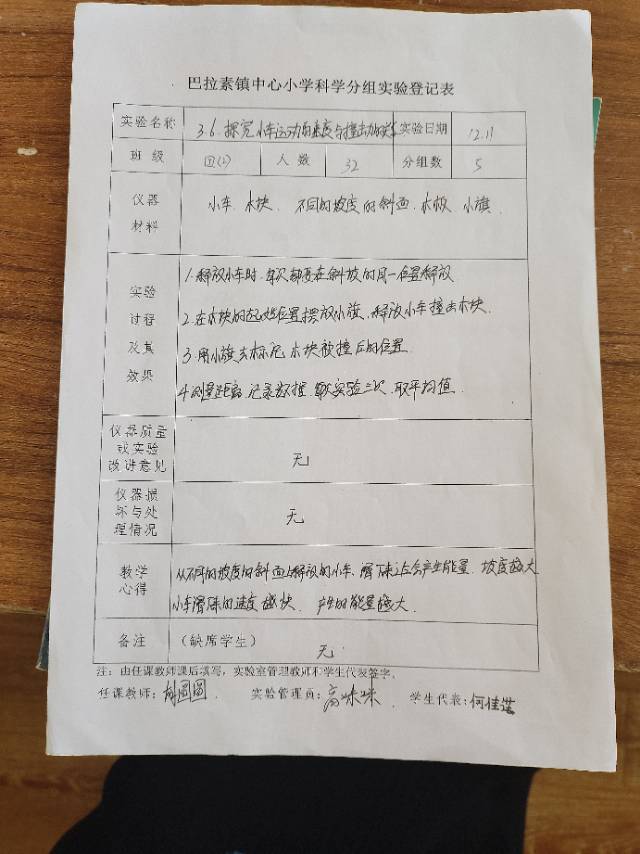 巴拉素镇中心小学科学分组实验登记表
实验名称 3.6.探究小车运动的速度与撞击力的关系 实验日期 12.11
班 级 四(2) 人 数 32 分组数 5
仪器
材料
小车、木块、不同的坡度的斜面、木板、小旗
实验
过程
及其
效果
1.释放小车时,每次都要在斜坡的同一位置释放
2.在木块的起始位置摆放小旗、释放小车撞击木块.
3.用小旗去标记木块被撞后的位置.
4.测量距离,记录数据,实验三次,取平均值.
仪器质量
或实验
改进意见
无
仪器损
坏与处
理情况
无
教学
心得
从不同的坡度的斜面上释放的小车、滑下来后会产生能量、坡度越大
小车滑下来的速度越快、产生的能量越大.
备注 (缺席学生) 无
注:由任课教师课后填写,实验室管理教师和学生代表签字。
任课教师: 圆圆 实验管理员:高咪咪. 学生代表:何佳